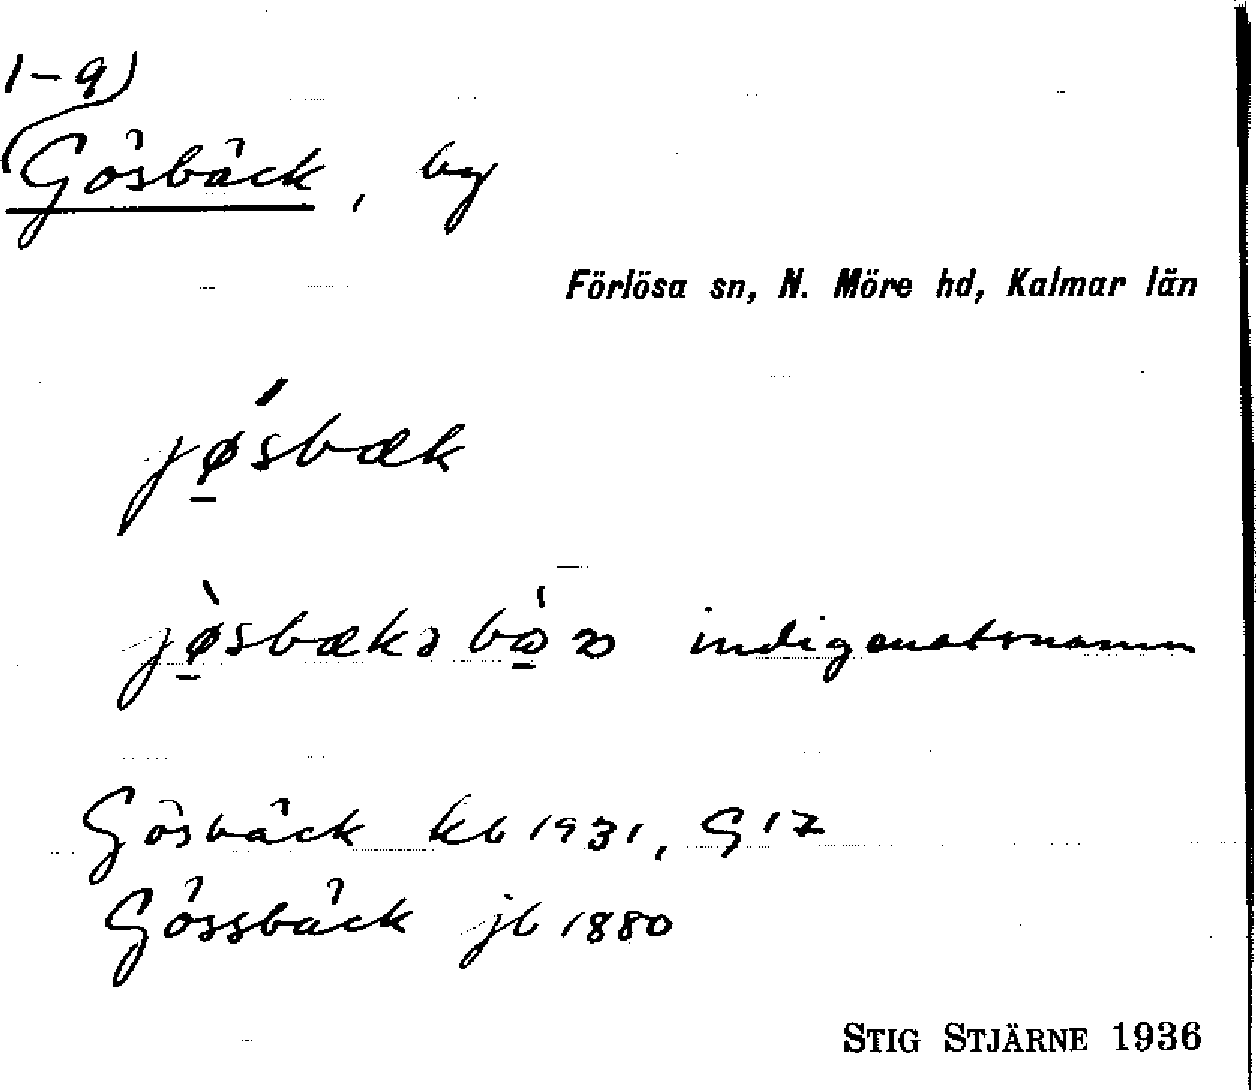 1–9)
Gösbäck, by
Förlösa sn, N. Möre hd, Kalmar län
jǿ̱sbæk
indigenatsnamn
Gösbäck kb 1931, G 12
Gössbäck jb 1880
STIG STJÄRNE 1936